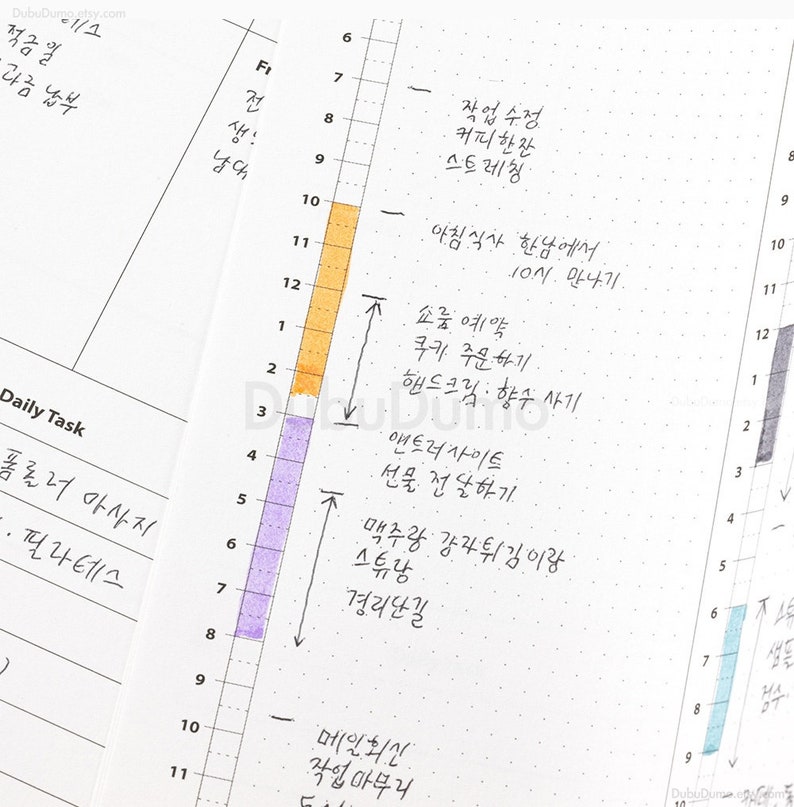 DubuDumo.etsy.com
적금일
납부
6
7
8
9
10
11
12
1
2
3
4
5
6
7
8
9
10
11
작업 수정
커피한잔
스트레칭
아침식사 한남에서
10시 만나기
쇼룸 예약
쿠키 주문하기
핸드크림, 향수 사기
앤트러사이트
선물 전달하기
맥주랑 감자튀김이랑
스튜랑
경리단길
메일회신
작업마무리
Daily Task
폼롤러 마사지
필라테스
DubuDumo
8
9
10
11
12
1
2
3
4
5
6
7
8
9
10
샘플
검수
DubuDumo.etsy.com